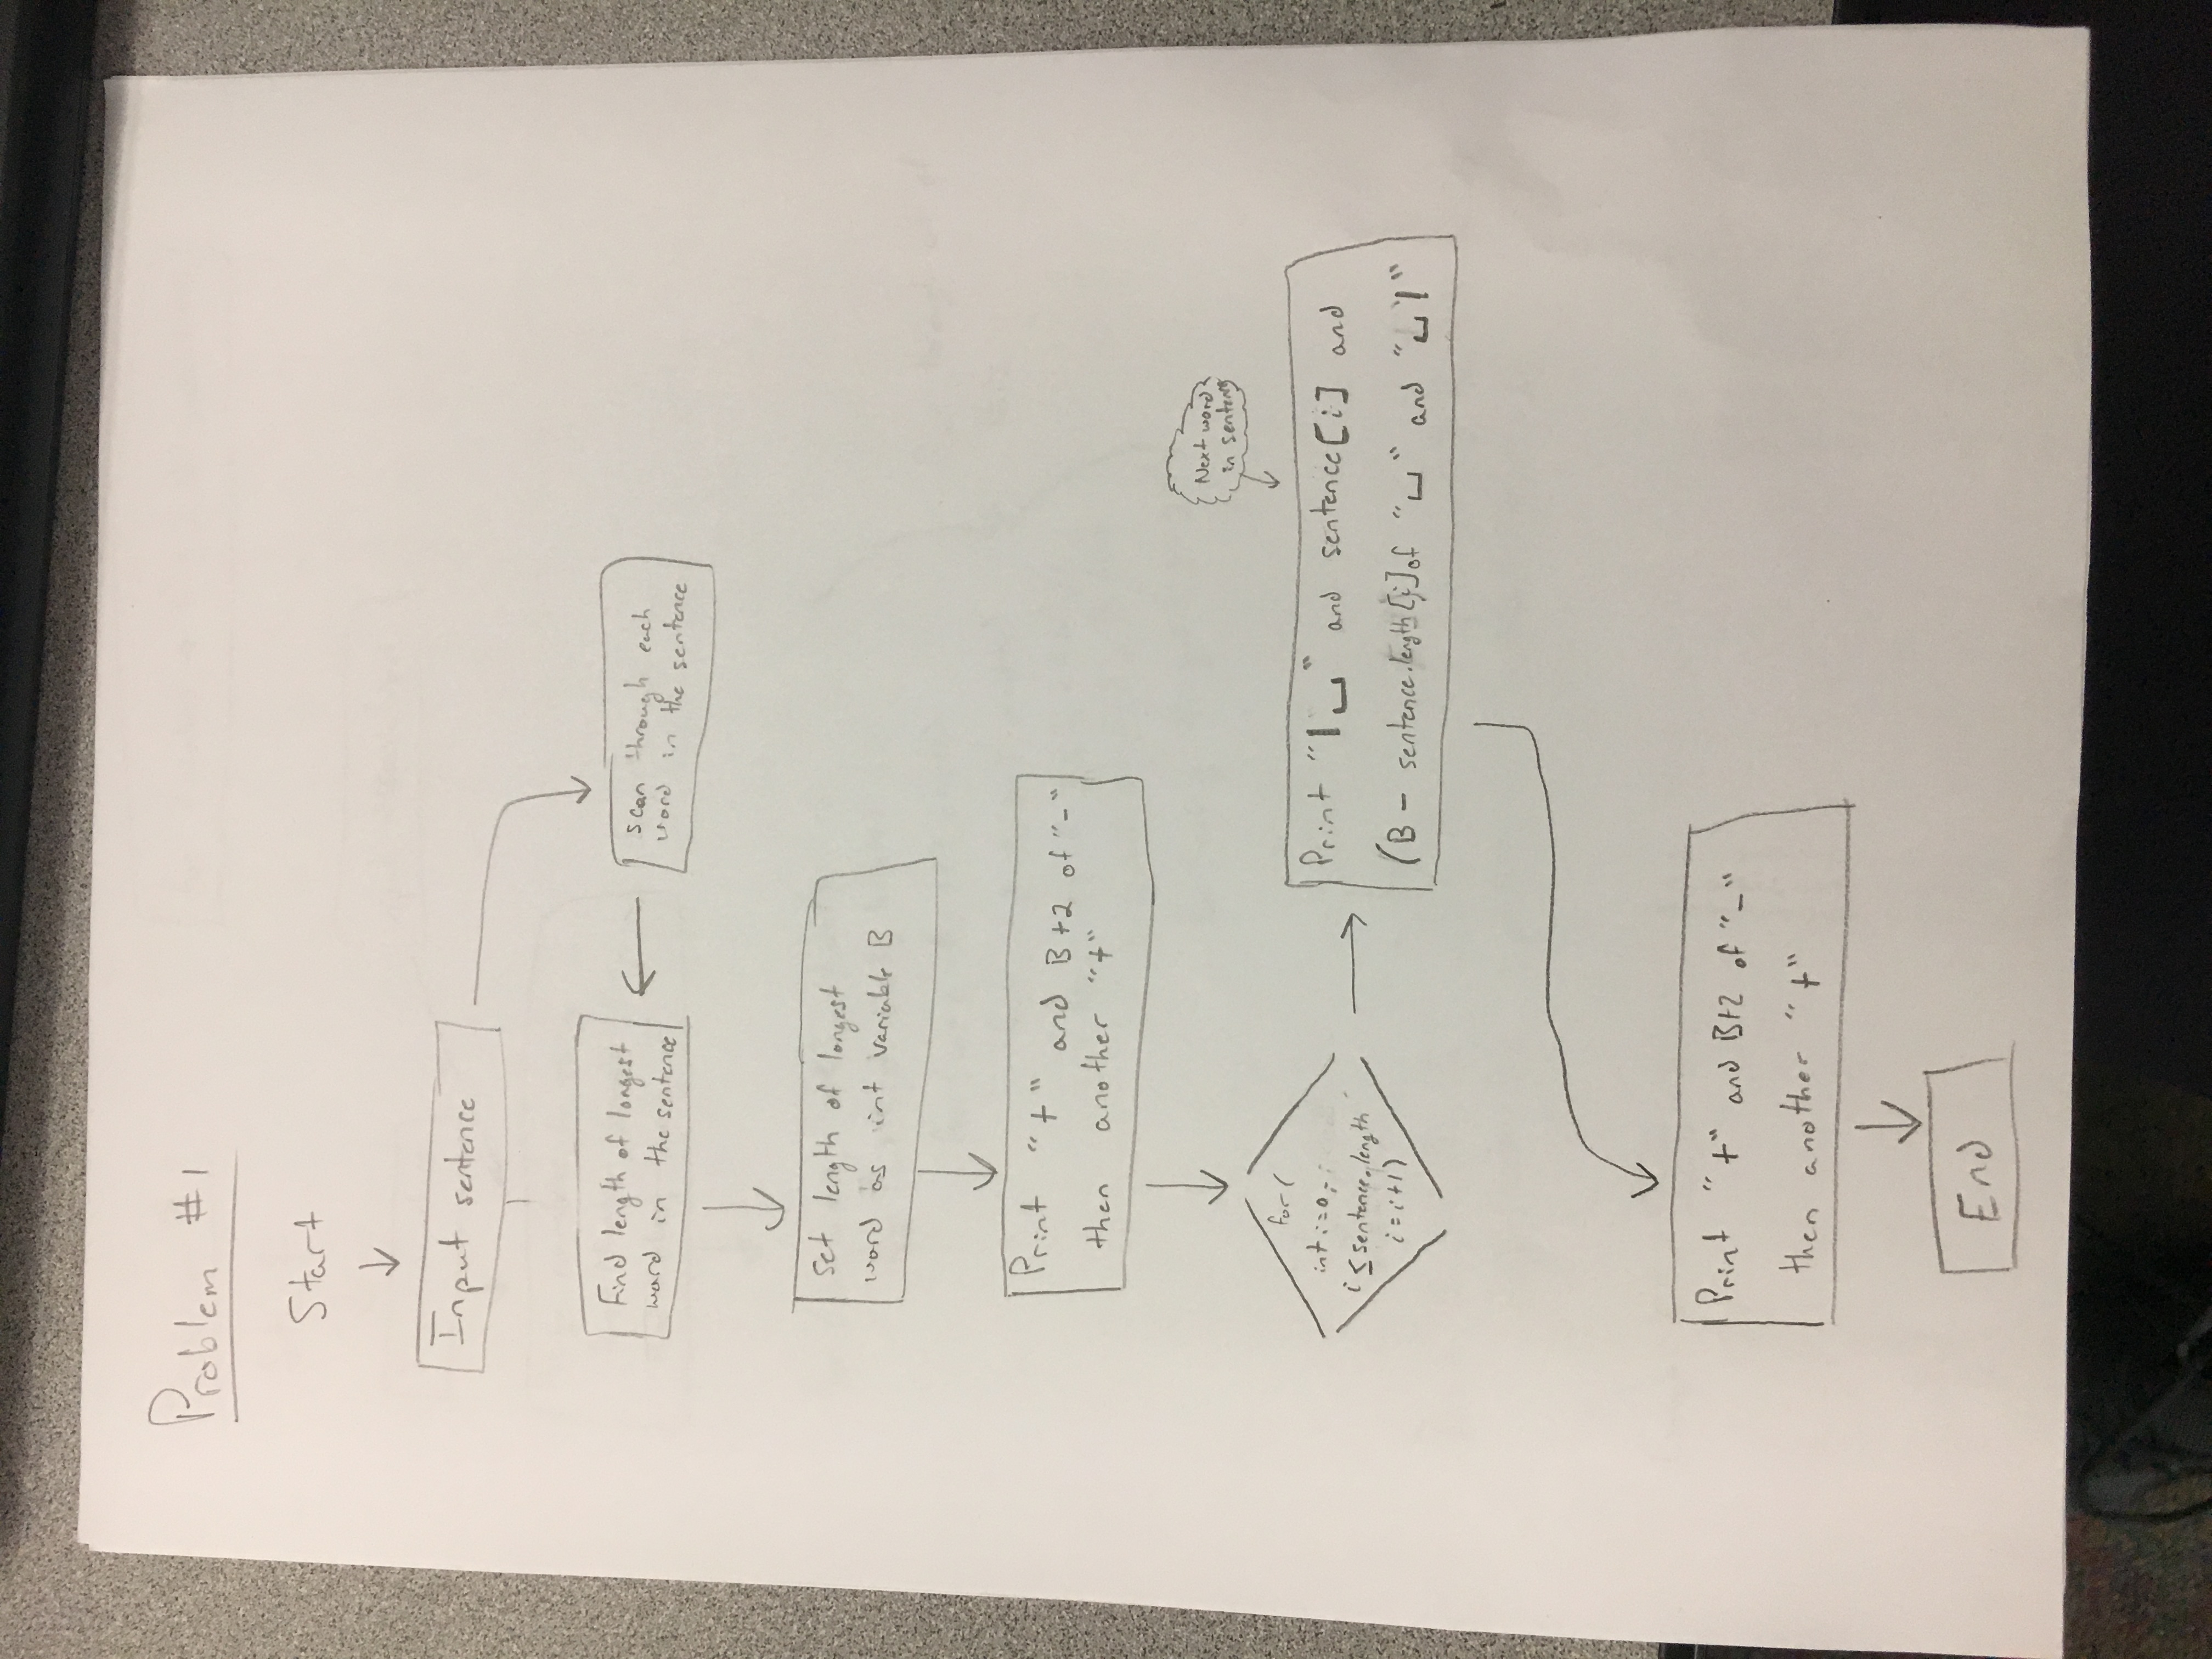 Problem #1
Start
Input sentence
Find length of longest
word in the sentence
scan through each
word in the sentence
Set length of longest
word as int variable B
Print "+" and B+2 of "-"
then another "+"
for(
int i=0;
i ≤ sentence.length
i=i+1)
Next word
in sentence
Print "|␣" and sentence[i] and
(B - sentence.length[i] of "␣" and "␣|"
Print "+" and B+2 of "-"
then another "+"
End